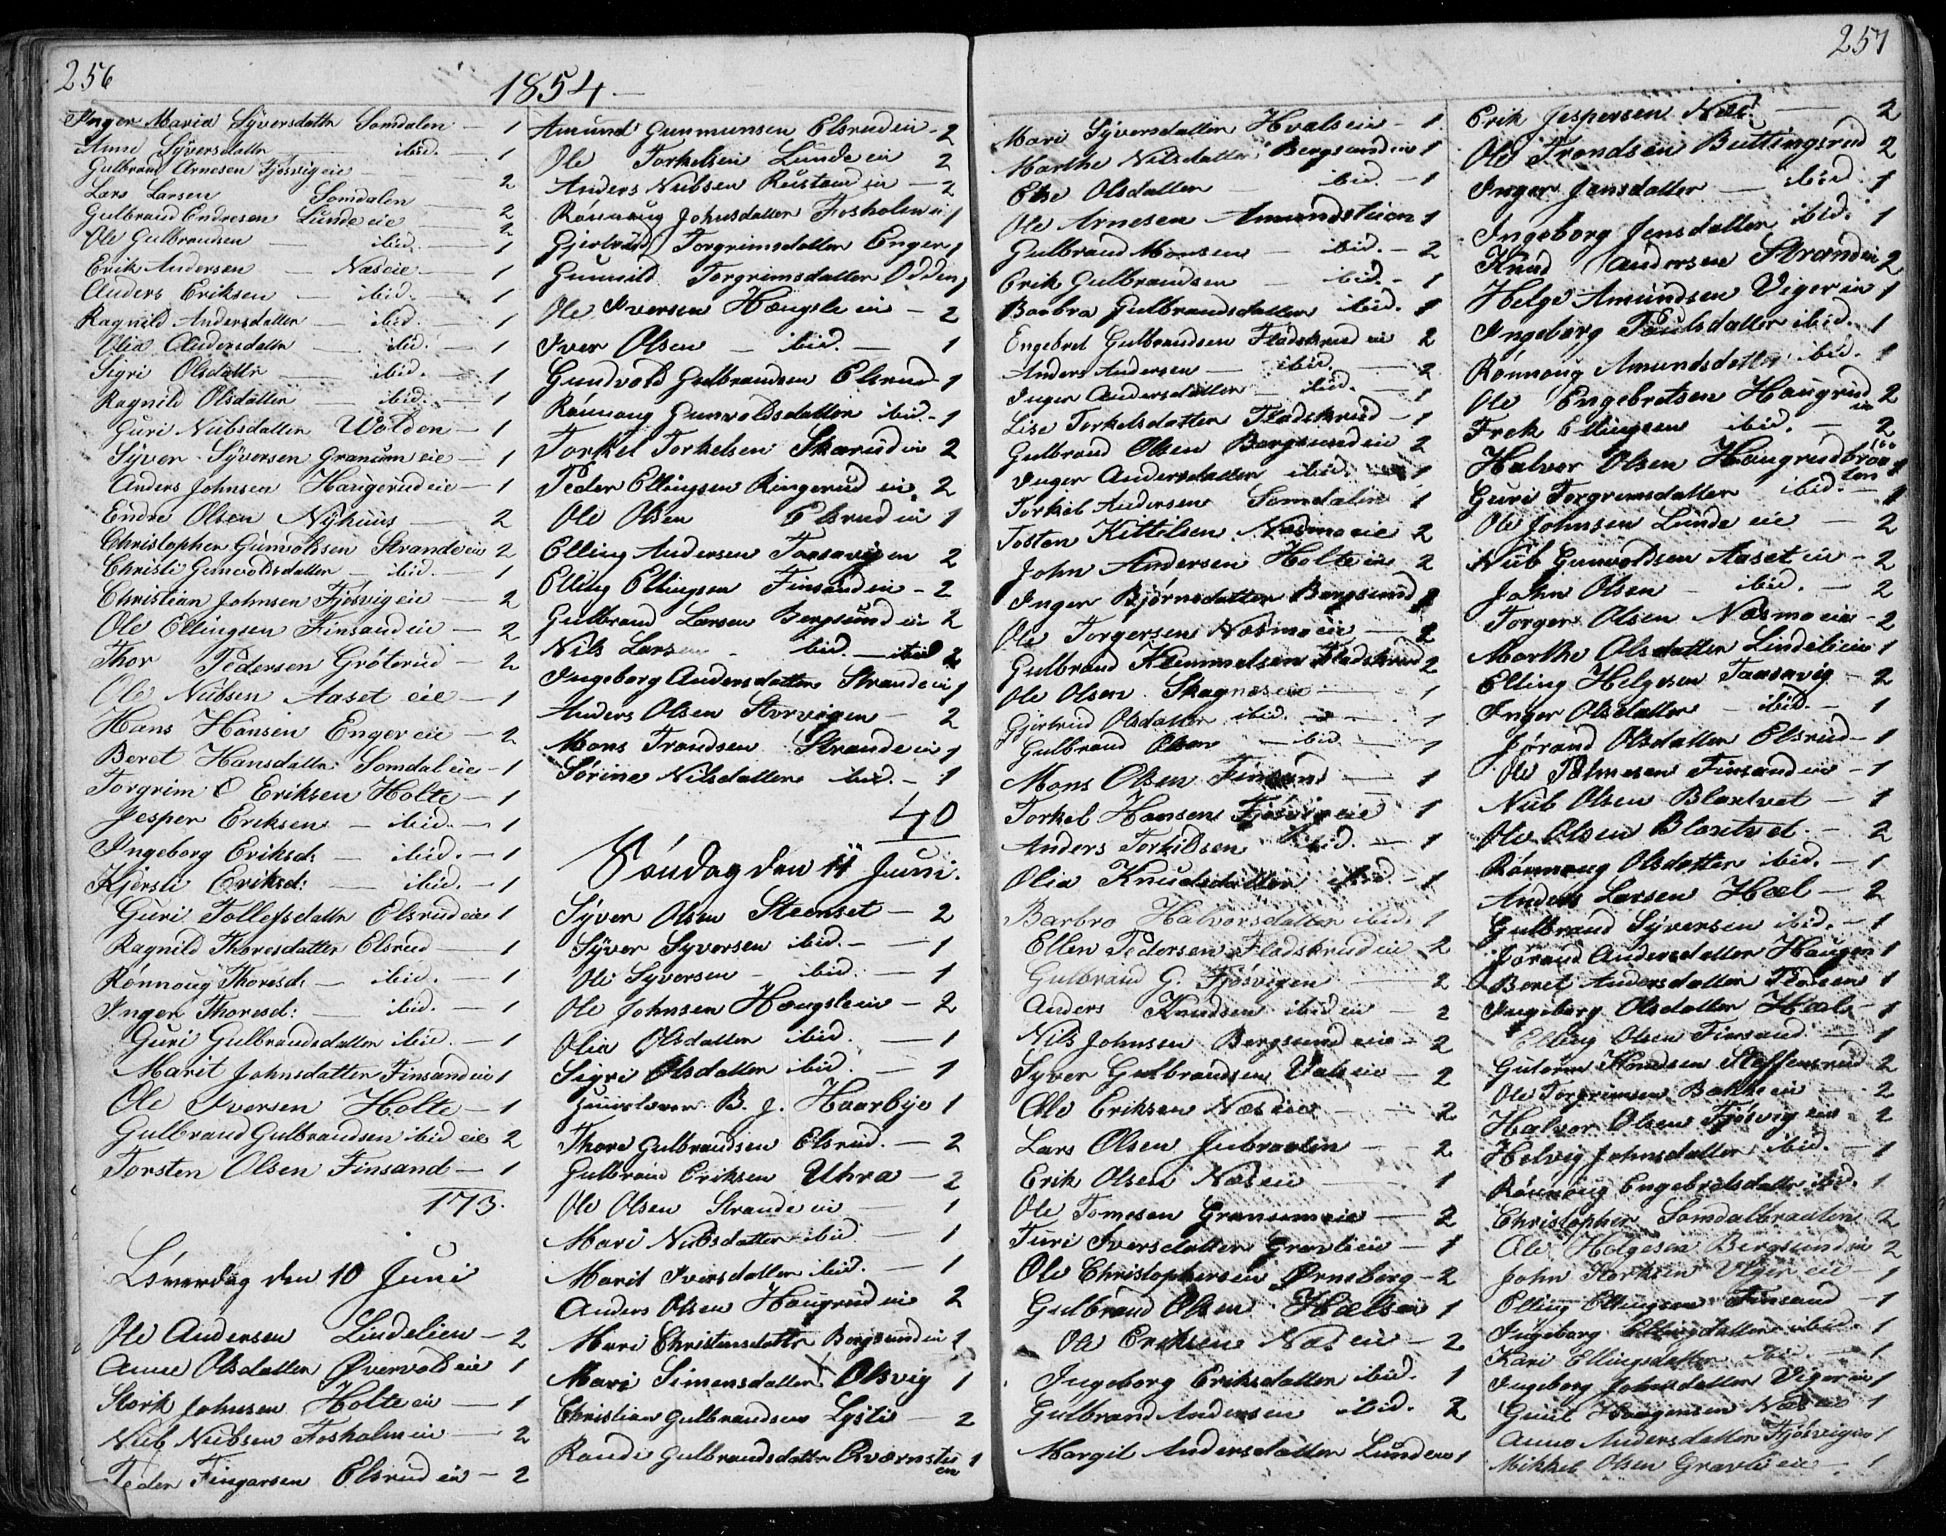 256
1854.
Inger Maria Syversdattr Somdalen — 1
Anne Syversdattr — ibid. — 1
Gulbrand Arnesen Fjøsvigeie — 2
Lars Larsen Somdalen — 2
Gulbrand Endresen Lundeeie 2
Ole Gulbrandsen — ibid. — 1
Erik Andersen — Næseie — 1
Anders Eriksen — ibid. — 1
Ragnild Andersdatter — ibid. — 1
Olia Andersdattr — ibid. — 1
Sigri Olsdattr — ibid. — 1
Ragnild Olsdatter — ibid. — 1
Guri Nubsdatter Wolden — 1
Syver Syversen Granumeie — 1
Anders Johnsen Haugerudeie — 1
Endre Olsen Nyhuus — 2
Christopher Gunvoldsen Strandeeie 2
Christi Gunvoldsdatter — ibid. 1
Christian Johnsen Fjøsvigeie — 2
Ole Ellingsen Finsandeie — 2
Thor Pedersen Grøterud — 2
Ole Nubsen Aaset eie — 1
Hans Hansen Engereie — 2
Beret Hansdattr Somdaleie — 1
Torgrim O Eriksen Holte — 1
Jesper Eriksen — ibid. — 1
Ingeborg Eriksd: — ibid. — 1
Kjersti Eriksd: — ibid. — 1
Guri Tollefsdattr Elsrudeie 1
Ragnild Thoresdatter Elsrud — 1
Rønnoug Thoresd: — ibid. — 1
Inger Thoresd: — ibid. — 1
Guri Gulbrandsdatter ibid. — 1
Marit Johnsdatter Finsandeie 1
Ole Iversen Holte — 1
Gulbrand Gulbrandsen ibid eie 2
Torsten Olsen Finsand — 1
173.
Løverdag den 10 Juni
Ole Andersen Lindelien — 2
Anne Olsdatter Øvervoldeie 1
Stork Johnsen Holteeie — 1
Nub Nubsen Fosholmeie — 2
Peder Fingarsen Elsrudeie — 2
Amund Gunmunsen Elsrudeie — 2
Ole Torkelsen Lundeeie 2
Anders Nubsen Rustandeie — 2
Rønnoug Johnsdatter Fosholmei 1
Gjertrud Torgrimsdatter Enger 1
Gunnild Torgrimsdatter Odden 1
Ole Iversen Hougsleeie — 2
Iver Olsen — ibid. — 1
Gundvold Gulbrandsen Elsrud — 1
Rønnoug Gunvoldsdatter ibid. — 1
Torkel Torkelsen Skarudeie 2
Peder Ellingsen Ringerud eie 2
Ole Olsen Elsrudeie 1
Elling Andersen Taasavigen 2
Elling Ellingsen Finsandeie — 2
Gulbrand Larsen Bergsundeie 2
Nils Larsen — ibid. — 2
Ingeborg Andersdatter Strandeeie 1
Anders Olsen Storvigen — 2
Mons Trondsen Strandeeie 1
Sørine Nilsdatter ibid. — 1
40
Søndag den 11 Juni.
Syver Olsen Steenset — 2
Syver Syversen ibid. — 1
Ole Syversen — ibid. — 1
Ole Johnsen Hougsleeie — 2
Olia Olsdatter ibid. — 1
Sigri Olsdatter ibid. — 1
B. J. Haarbye 1
Thore Gulbrandsen Elsrud. — 2
Gulbrand Eriksen Uhra — 2
Ole Olsen Strandeeie — 1
Mari Nubsdatter ibid — 1
Marit Iversdatter ibid. — 1
Anders Olsen Hougrudeie 2
Mari Christensdattr Bergsundeie 1
Mari Simensdatter Olsvig 1
Christian Gulbrandsen Lystie 2
Randi Gulbrandsdatter Kværnstueen 1
257
Mari Syversdatter Hvalseie — 1.
Marthe Nilsdatter Bergsundeie 1
Else Olsdatter — ibid. — 1
Ole Arnesen Amundstuen 1
Gulbrand Monsen — ibid. — 2
Erik Gulbrandsen — ibid. — 1
Barbra Gulbrandsdatter ibid. 1
Engebret Gulbrandsen Fladskrudeie 2
Anders Andersen — ibid. — 2
Inger Andersdatter — ibid. — 1
Lise Torkelsdatter Fladskrud — 1
Gulbrand Olsen Bergsundeie 2
Inger Andersdatter ibid. 1
Torkel Andersen Somdalen 1
Tosten Kittelsen Næsmoeie 2
John Andersen Holteeie 2
Inger Bjørnsdatter Bergsund 1
Ole Torgersen Næsmoeie — 2
Gulbrand Klemmetsen Fladskrud 2
Ole Olsen Skagnæseie — 1
Gjertrud Olsdatter ibid. — 1
Gulbrand Olsen — ibid. — 1
Mons Olsen Finsand — 1
Torkel Hansen Fjøsvigeie 1
Anders Torkildsen ibid. — 1
Olia Knudsdatter ibid. — 1
Barbro Halvorsdatter ibid. 1
Ellen Pedersen Fladskrudeie 2
Gulbrand G. Fjøsvigen — 2
Anders Knudsen ibid eie — 2
Nils Johnsen Bergsundeie — 2
Syver Gulbrandsen Valseie — 2
Ole Eriksen Næseie — 2
Lars Olsen Jubraaten — 2
Erik Olsen Næseie — 1
Ole Tomesen Granumeie — 2
Turi Iversdatter Gravlieeie — 1
Ole Christophersen Ørneberg — 2
Gulbrand Olsen Hælseie 1
Ole Eriksen Næseie — 2
Ingeborg Eriksdatter ibid. 1
Gulbrand Andersen ibid. 2
Margit Andersdatter Lundeeie 1
Erik Jespersen Næs — 2
Ole Trondsen Buttingsrud 2
Inger Jensdatter — ibid. 1
Ingeborg Jensdatter ibid. 1
Knud Andersen Strandeie 2
Helge Amundsen Vigereie 1
Ingeborg Paulsdatter ibid. 1
Rønnoug Amundsdatter ibid. 1
Ole Engebretsen Hougrudeie 2
Frek Ellingsen ibid. — 2
Halvor Olsen Hougrudbraaten 1
Guri Torgrimsdatter ibid. — 1
Ole Johnsen Lundeeie — 2
Nub Gunvoldsen Aaseteie — 2
John Olsen — ibid. — 2
Torger Olsen Næsmoeie — 2
Marthe Olsdatter Lindelieeie 1
Elling Helgesen Taasavig — 2
Inger Olsdatter — ibid. — 1
Jørand Olsdatter Elsrud — 1
Ole Tolmesen Finsandeie — 1
Nub Olsen Blaxtvet — 1
Ole Olsen Blaxtvet. — 2
Rønnoug Olsdatter ibid. — 1
Anders Larsen Hæl — 2
Gulbrand Syversen ibid. — 1
Jørand Andersdatter Haugen 1
Beret Andersdatter 1
Ingeborg Olsdatter Hæl — 1
Elling Olsen Finsand — 1
Gutorm Knudsen Steffensrud 2
Ole Torgrimsen Bakkeeie — 2
Halvor Olsen Fjøsvig eie — 2
Helvig Johnsdatter ibid. — 1
Rønnoug Engebretsdattr ibid. 1
Christopher Somdalbraaten 2
Ole Helgesen Bergsundeie 2
John Storksen Vigereie — 1
Elling Ellingsen Finsand — 1
Ingeborg Ellingsdatter ibid. 1
Kari Ellingsdatter ibid. — 1
Ingeborg Johnsdatter Vigereie 1
Haagensen Næseie 1
Anne Andersdatter Fjøsvigeie 1
Mikkel Olsen Gravlieeie — 1